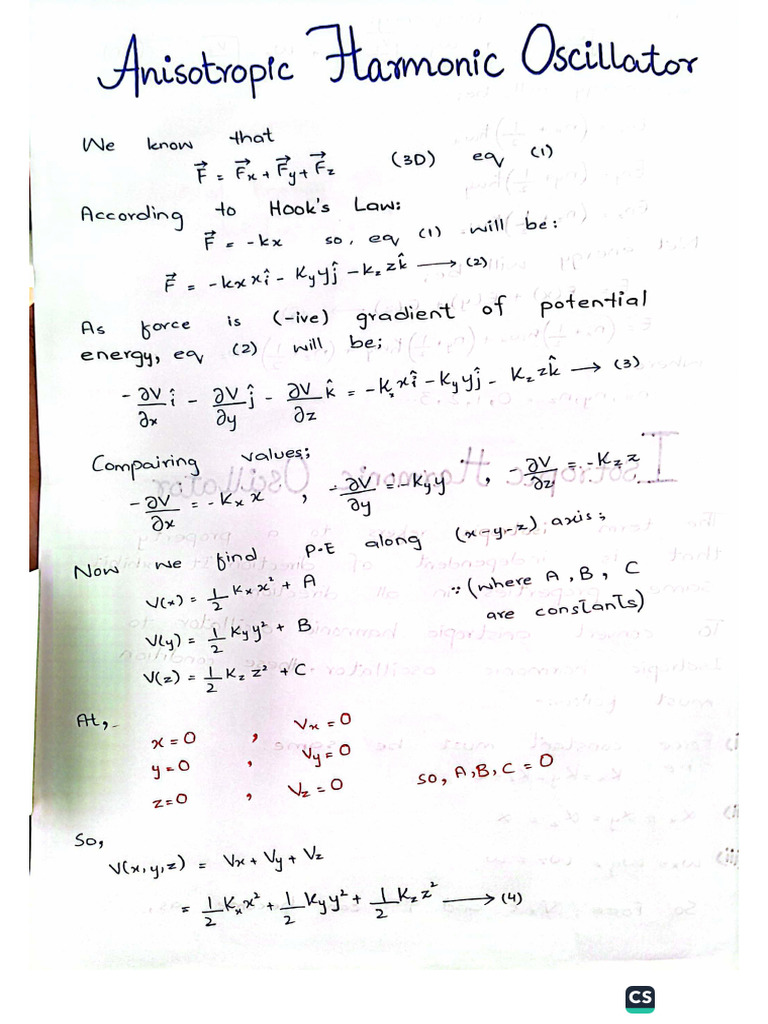 Anisotropic Harmonic Oscillator
We know that
F⃗ = F⃗x + F⃗y + F⃗z (3D) eq (1)
According to Hook's Law:
F⃗ = -kx so, eq (1) will be:
F⃗ = -kx x î - Ky y ĵ - kz z k̂ ⟶ (2)
As force is (-ive) gradient of potential
energy, eq (2) will be;
-∂V/∂x î - ∂V/∂y ĵ - ∂V/∂z k̂ = -Kx x î - Ky y ĵ - Kz z k̂ ⟶ (3)
Compairing values;
-∂V/∂x = -Kx x , -∂V/∂y = -Ky y , -∂V/∂z = -Kz z
Now we find P.E along (x-y-z) axis;
V(x) = 1/2 Kx x² + A ∵ (where A, B, C
V(y) = 1/2 Ky y² + B are constants)
V(z) = 1/2 Kz z² + C
At,
x = 0 , Vx = 0
y = 0 , Vy = 0
z = 0 , Vz = 0 so, A, B, C = 0
So,
V(x, y, z) = Vx + Vy + Vz
= 1/2 Kx x² + 1/2 Ky y² + 1/2 Kz z² ⟶ (4)
CS